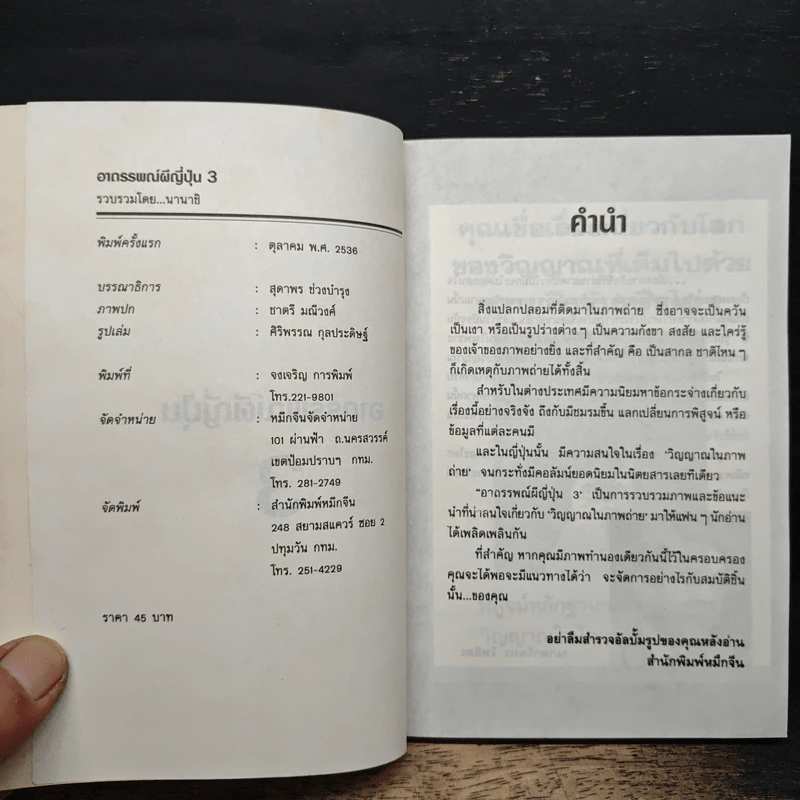 อาถรรพณ์ผีญี่ปุ่น 3
รวบรวมโดย...นานาชิ
พิมพ์ครั้งแรก : ตุลาคม พ.ศ. 2536
บรรณาธิการ : สุดาพร ช่วงบำรุง
ภาพปก : ชาตรี มณีวงศ์
รูปเล่ม : ศิริพรรณ กุลประดิษฐ์
พิมพ์ที่ : จงเจริญ การพิมพ์
โทร.221-9801
จัดจำหน่าย : หมึกจีนจัดจำหน่าย
101 ผ่านฟ้า ถ.นครสวรรค์
เขตป้อมปราบฯ กทม.
โทร. 281-2749
จัดพิมพ์ : สำนักพิมพ์หมึกจีน
248 สยามสแควร์ ซอย 2
ปทุมวัน กทม.
โทร. 251-4229
ราคา 45 บาท
คำนำ
สิ่งแปลกปลอมที่ติดมาในภาพถ่าย ซึ่งอาจจะเป็นควัน
เป็นเงา หรือเป็นรูปร่างต่าง ๆ เป็นความกังขา สงสัย และใคร่รู้
ของเจ้าของภาพอย่างยิ่ง และที่สำคัญ คือ เป็นสากล ชาติไหน ๆ
ก็เกิดเหตุกับภาพถ่ายได้ทั้งสิ้น
สำหรับในต่างประเทศมีความนิยมหาข้อกระจ่างเกี่ยวกับ
เรื่องนี้อย่างจริงจัง ถึงกับมีชมรมขึ้น แลกเปลี่ยนการพิสูจน์ หรือ
ข้อมูลที่แต่ละคนมี
และในญี่ปุ่นนั้น มีความสนใจในเรื่อง 'วิญญาณในภาพ
ถ่าย' จนกระทั่งมีคอลัมน์ยอดนิยมในนิตยสารเลยทีเดียว
"อาถรรพณ์ผีญี่ปุ่น 3" เป็นการรวบรวมภาพและข้อแนะ
นำที่น่าสนใจเกี่ยวกับ 'วิญญาณในภาพถ่าย' มาให้แฟน ๆ นักอ่าน
ได้เพลิดเพลินกัน
ที่สำคัญ หากคุณมีภาพทำนองเดียวกันนี้ไว้ในครอบครอง
คุณจะได้พอจะมีแนวทางได้ว่า จะจัดการอย่างไรกับสมบัติชิ้น
นั้น...ของคุณ
อย่าลืมสำรวจอัลบั้มรูปของคุณหลังอ่าน
สำนักพิมพ์หมึกจีน